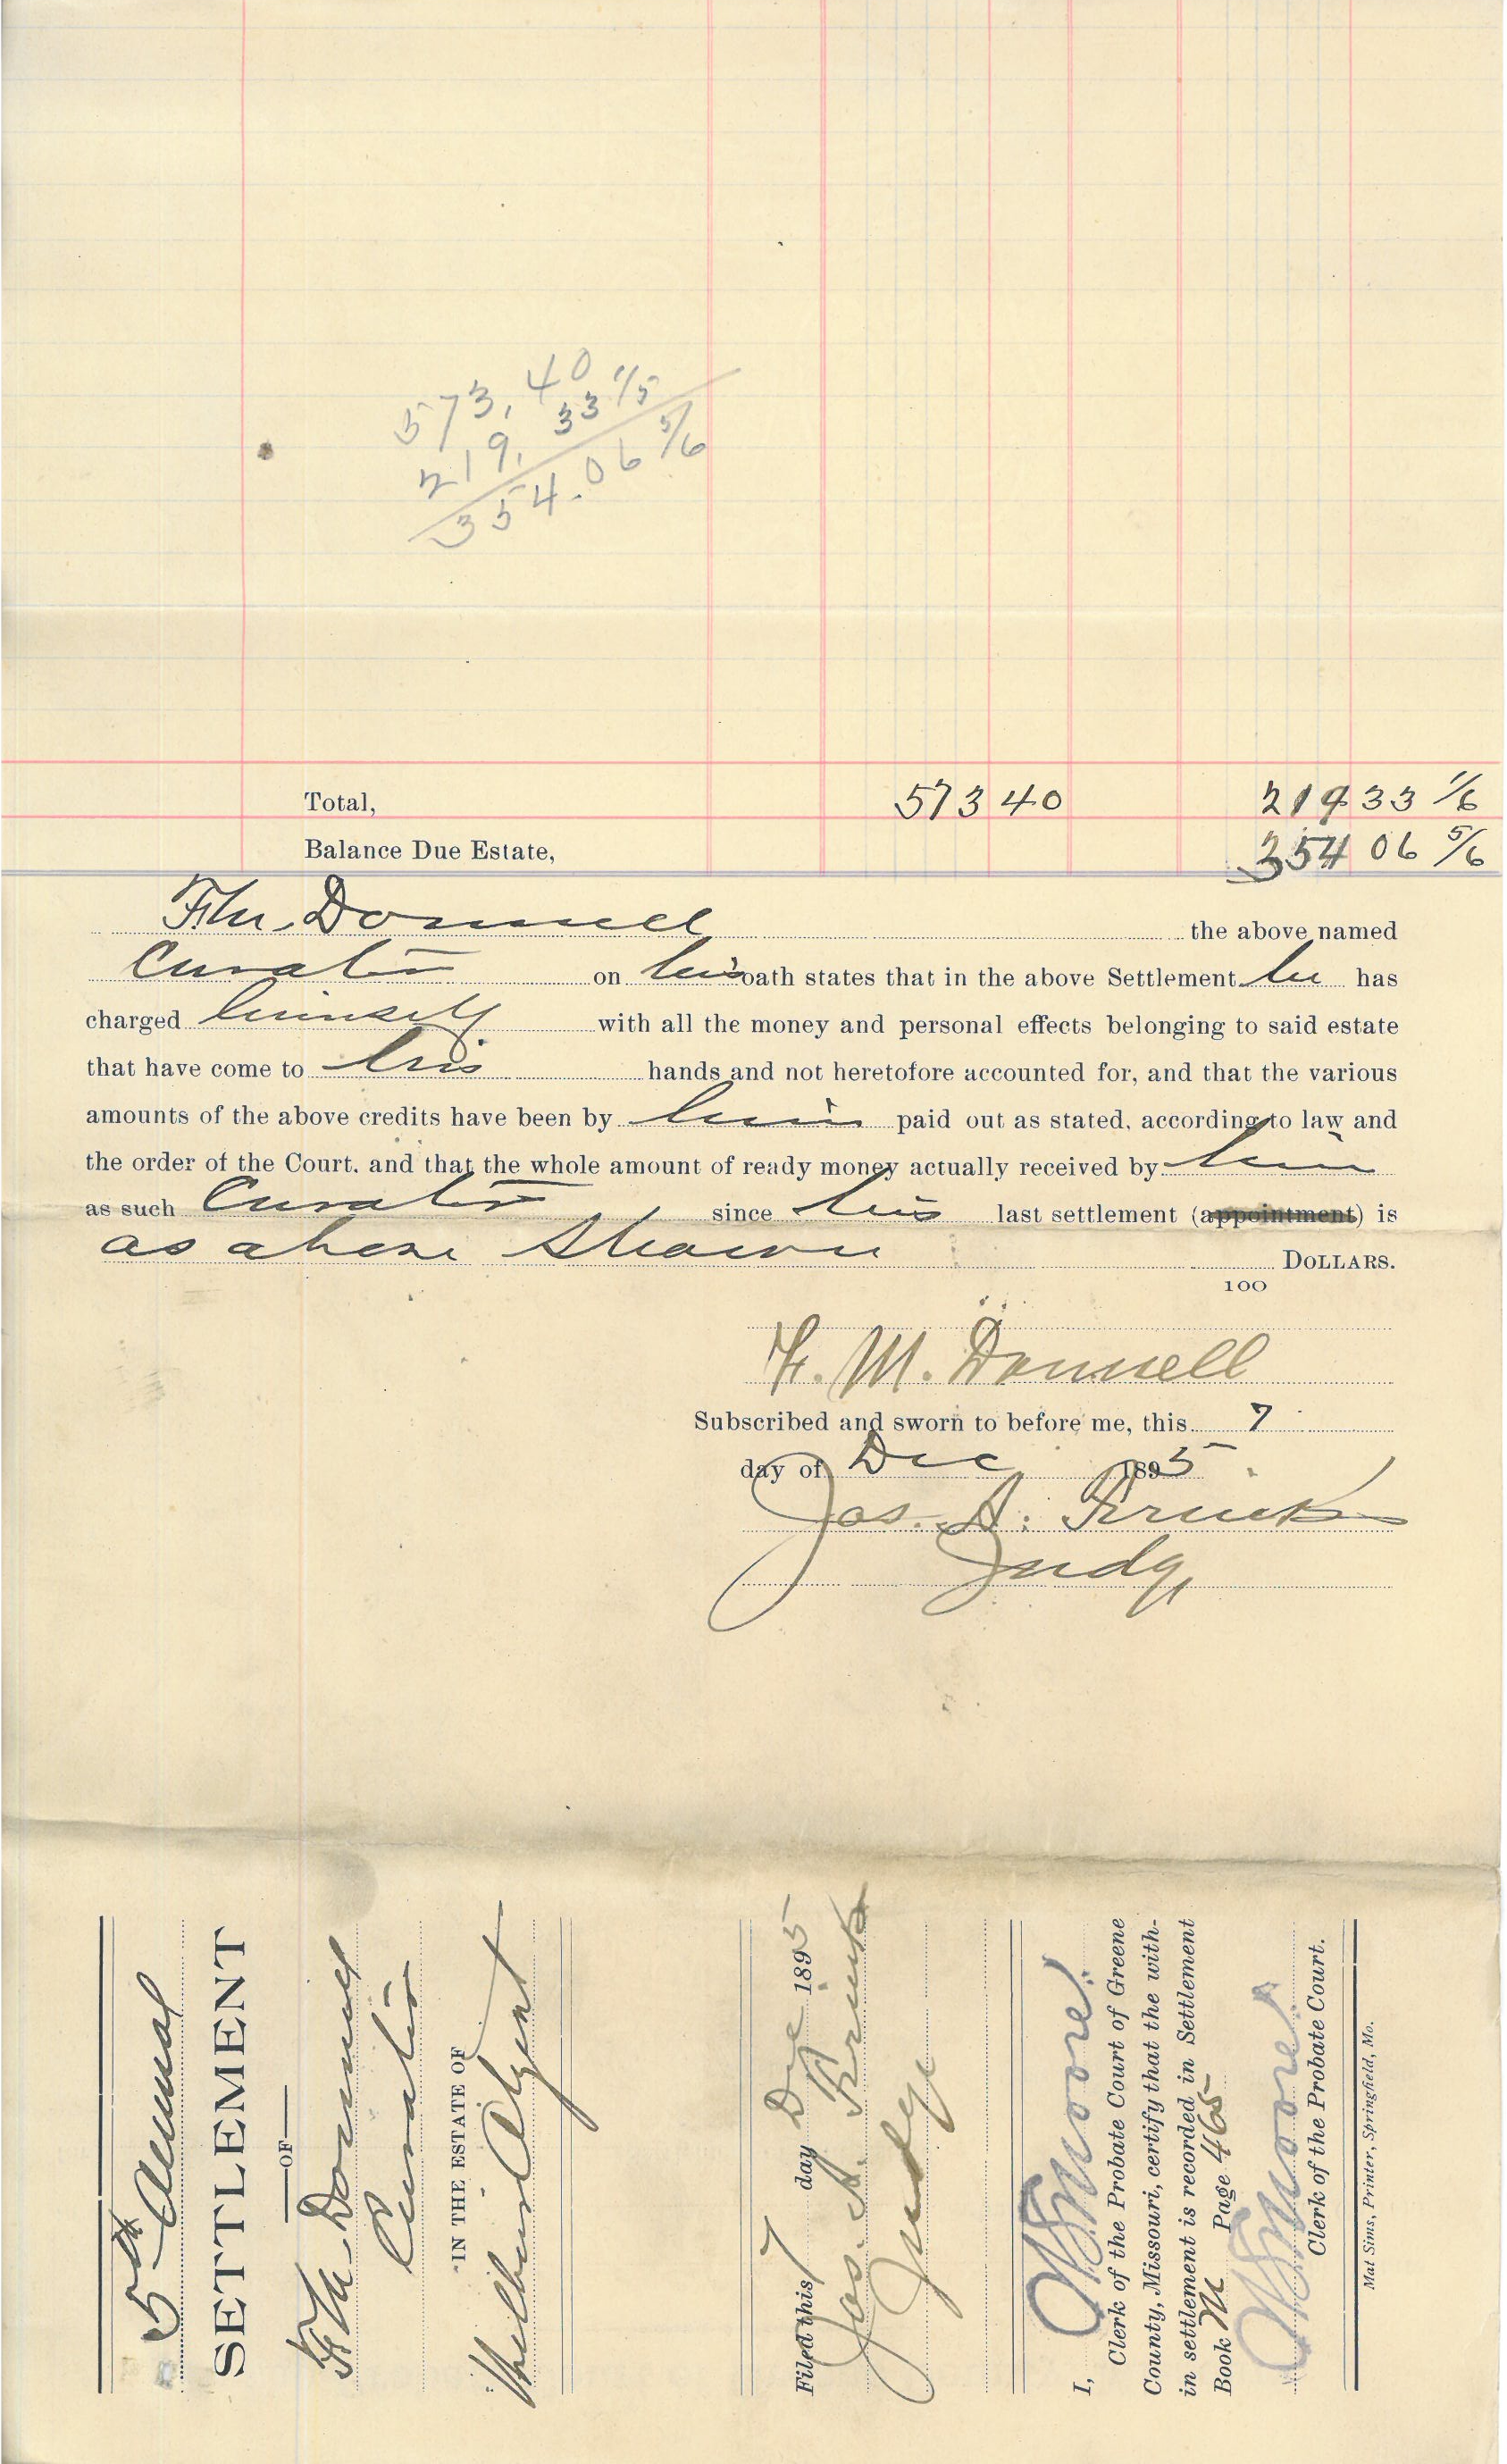 573,40
219,33 1/5
354.06 5/6
Total, 573 40 219 33 1/6
Balance Due Estate, 354 06 5/6
F.M. Donnell the above named
Curator on his oath states that in the above Settlement he has
charged himself with all the money and personal effects belonging to said estate
that have come to his hands and not heretofore accounted for, and that the various
amounts of the above credits have been by him paid out as stated, according to law and
the order of the Court, and that the whole amount of ready money actually received by him
as such Curator since his last settlement (appointment) is
as above Shown DOLLARS.
100
F. M. Donnell
Subscribed and sworn to before me, this 7
day of Dec 1895.
Jos. A.
Judge
5th Annual
SETTLEMENT
OF
F.M. Donnell
Curator
IN THE ESTATE OF
Filed this 7 day Dec 1895
Jos. A.
Judge
I, Moore
Clerk of the Probate Court of Greene
County, Missouri, certify that the with-
in settlement is recorded in Settlement
Book M Page 465
Moore
Clerk of the Probate Court.
Mat Sims, Printer, Springfield, Mo.